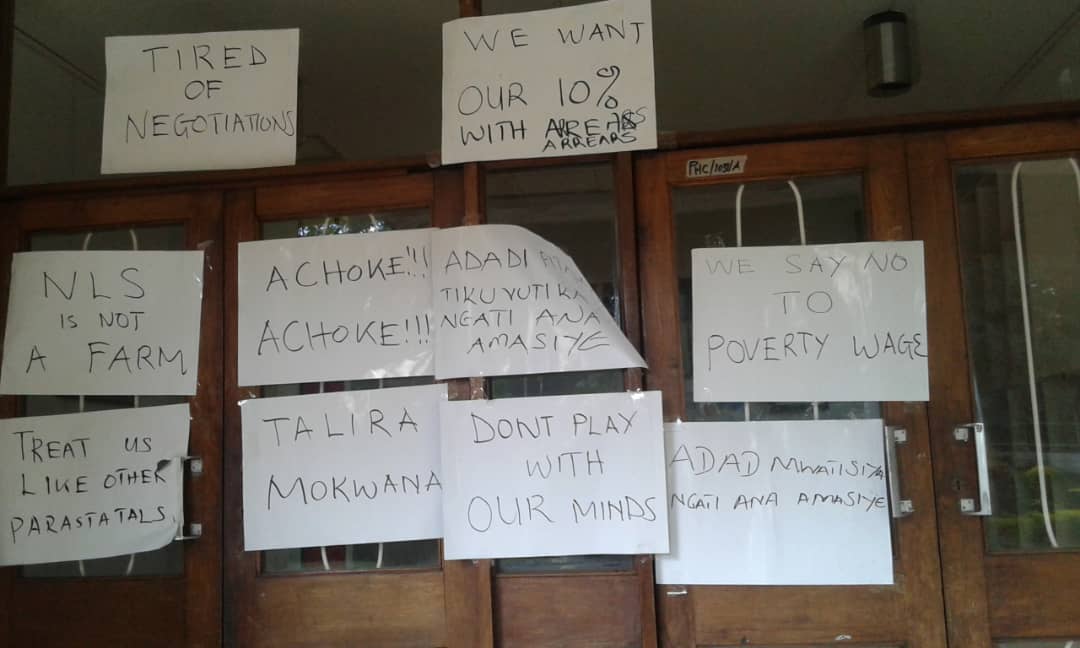 TIRED
OF
NEGOTIATIONS
WE WANT
OUR 10%
WITH ARREARS
ARREARS
PHC/1051/A
NLS
IS NOT
A FARM
ACHOKE!!!
ACHOKE!!!
ADADI
TIKUVUTIKA
NGATI ANA
AMASIYE
WE SAY NO
TO
POVERTY WAGE
TREAT US
LIKE OTHER
PARASTATALS
TALIRA
MOKWANA
DONT PLAY
WITH
OUR MINDS
ADAD MWATISIYA
NGATI ANA AMASIYE